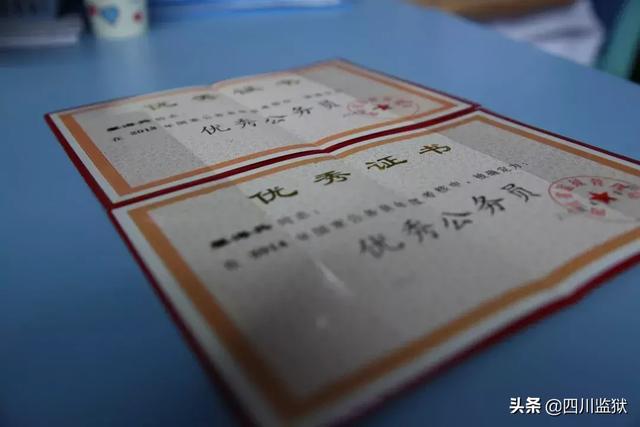 优秀证书
同志:
在 2015 年国家公务员年度考核中,
优秀公务员
优秀证书
同志:
在 2014 年国家公务员年度考核中,被确定为:
优秀公务员
头条 @四川监狱